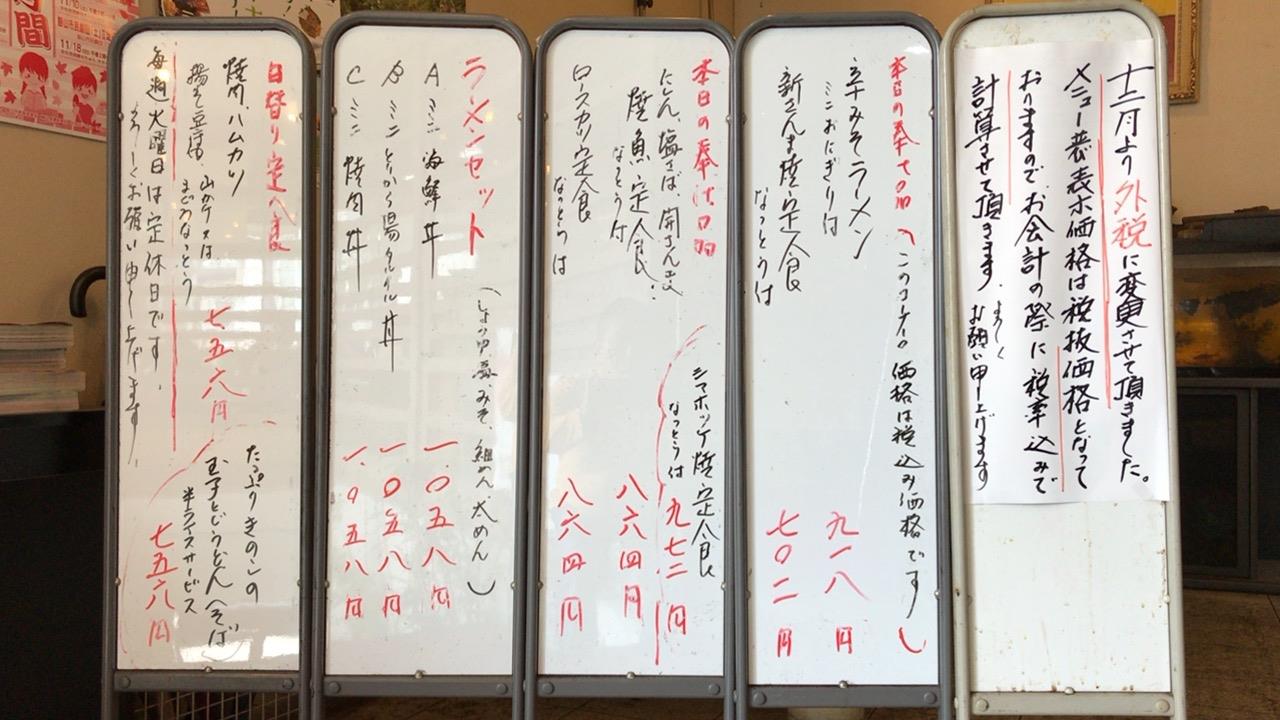 十二月より外税に変更させて頂きました。
メニュー表表示価格は税抜価格となって
おりますのでお会計の際に税率込みで
計算させて頂きます。よろしく
お願い申し上げます
本日の奉仕品(このコーナーの価格は税込み価格です)
辛みそラーメン
ミニおにぎり付 九一八円
新さんま焼定食
なっとう付 七〇二円
本日の奉仕品
にしん、塩さば、開さんま
焼魚定食
なっとう付 八六四円
シマホッケ焼定食
なっとう付 九七二円
ロースカツ定食
なっとう付 八六四円
ラーメンセット
(しょうゆ、みそ、細めん、太めん)
A ミニ海鮮丼 一、〇五八円
B ミニとりから湯タルタル丼 一、〇五八円
C ミニ焼肉丼 一、〇五八円
日替り定食
焼肉、ハムカツ
揚え豆腐、山かけ又は
まぐろなっとう 七五六円
たっぷりきのこの
玉子とじうどん(そば)
半ライスサービス 七五六円
毎週火曜日は定休日です。
よろしくお願い申し上げます。
間
11/10
11/18